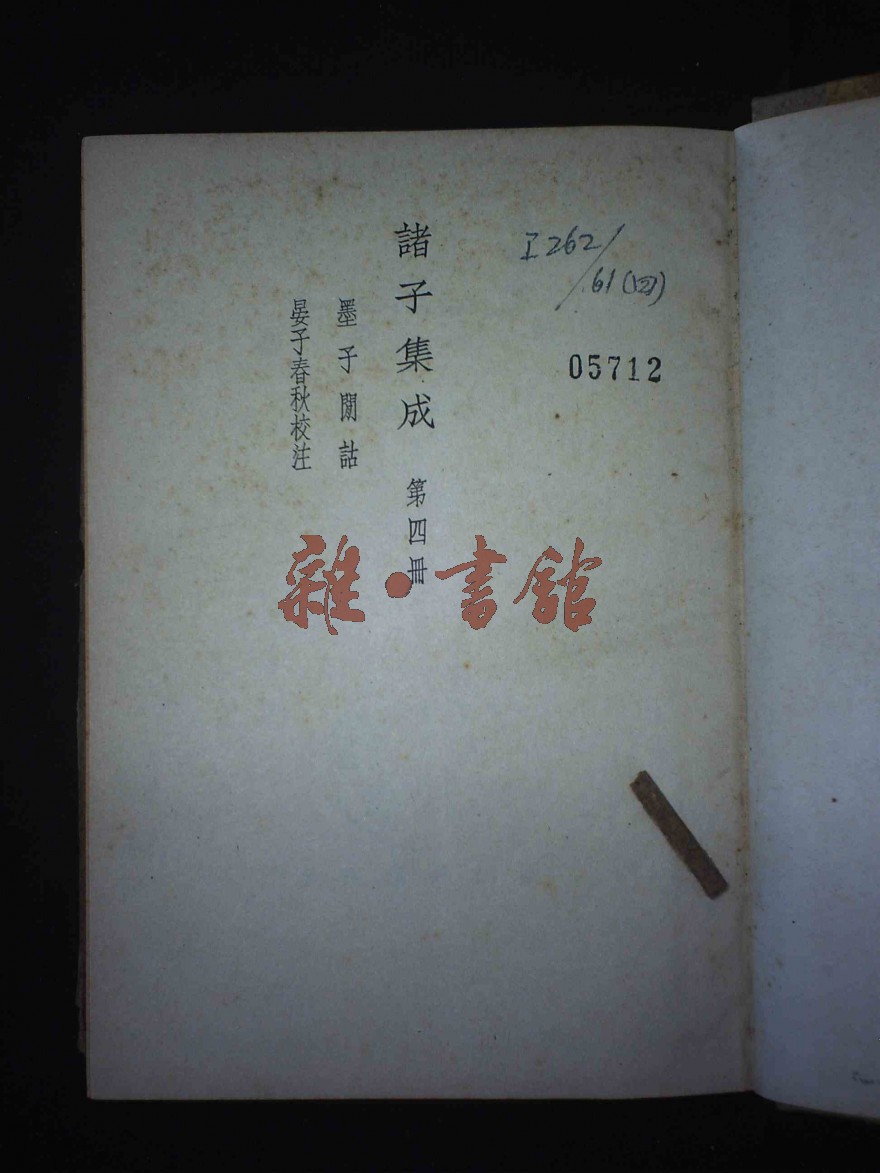 諸子集成 第四冊
墨子閒詁
晏子春秋校注
I262/61(四)
05712
雜·書館